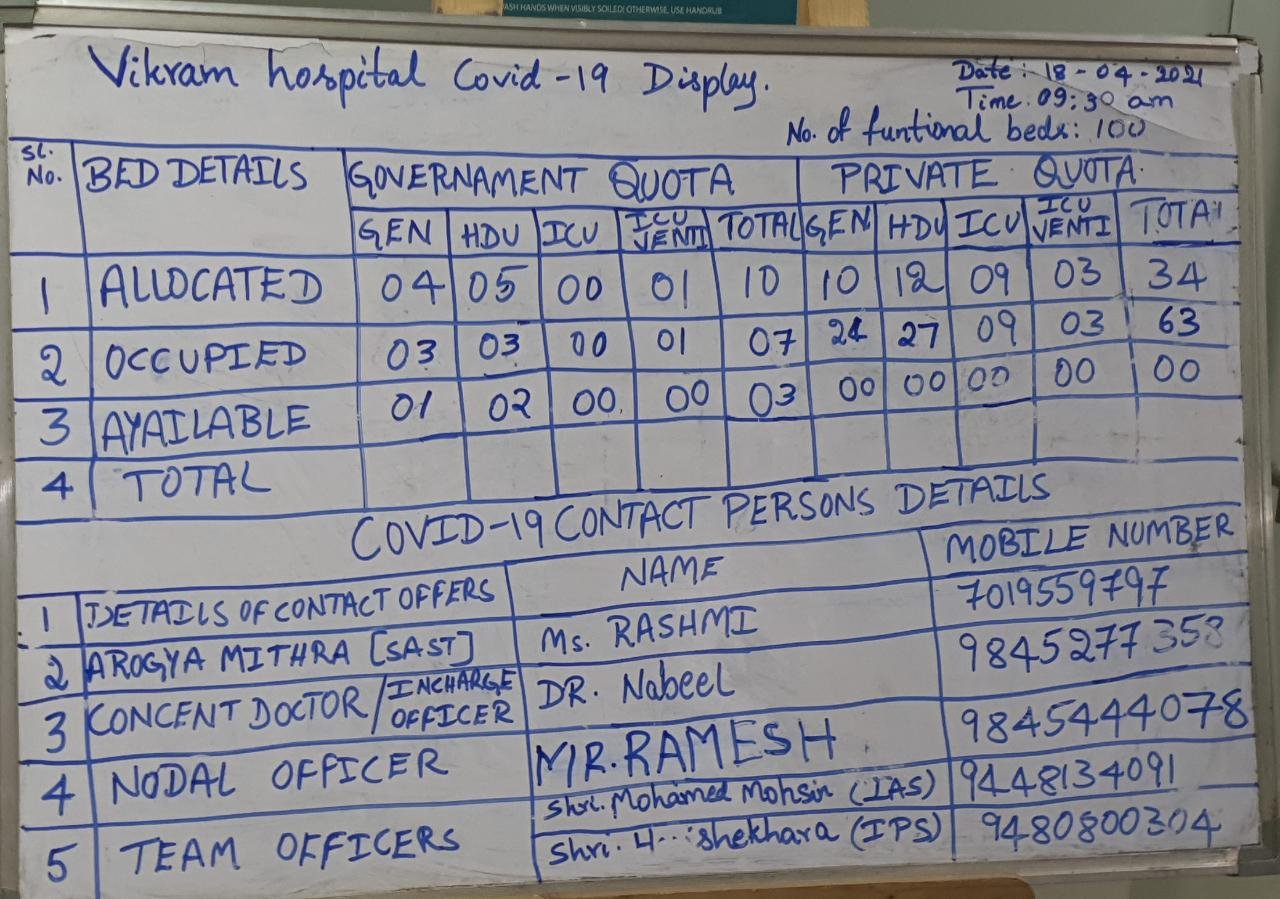 ASH HANDS WHEN VISIBLY SOILED! OTHERWISE, USE HANDRUB
Vikram hospital Covid-19 Display.
Date: 18-04-2021
Time. 09:30 am
No. of funtional beds: 100
SL. No. BED DETAILS GOVERNAMENT QUOTA PRIVATE QUOTA
GEN HDU ICU ICU VENTI TOTAL GEN HDU ICU ICU VENTI TOTAL
1 ALLOCATED 04 05 00 01 10 10 12 09 03 34
2 OCCUPIED 03 03 00 01 07 24 27 09 03 63
3 AYAILABLE 01 02 00 00 03 00 00 00 00 00
4 TOTAL
COVID-19 CONTACT PERSONS DETAILS
1 DETAILS OF CONTACT OFFERS NAME MOBILE NUMBER
2 AROGYA MITHRA [SAST] Ms. RASHMI 7019559797
3 CONCENT DOCTOR/INCHARGE OFFICER DR. Nabeel 9845277358
4 NODAL OFFICER MR. RAMESH 9845444078
5 TEAM OFFICERS Shri. Mohamed Mohsin (IAS) 9448134091
Shri. shekhara (IPS) 9480800304